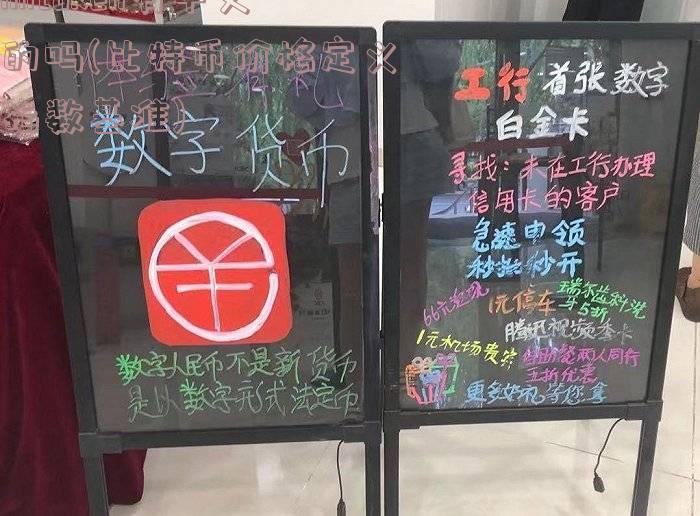 的吗(比特币价格定义
数基准)
数字货币
数字人民币不是新货币
是以数字形式法定币
工行首张数字
白金卡
寻找:未在工行办理
信用卡的客户
急速申领
秒批秒开
66元
1元停车
瑞尔齿科洗
牙5折
腾讯视频季卡
1元机场贵宾
两人同行
五折优惠
更多好礼等您拿